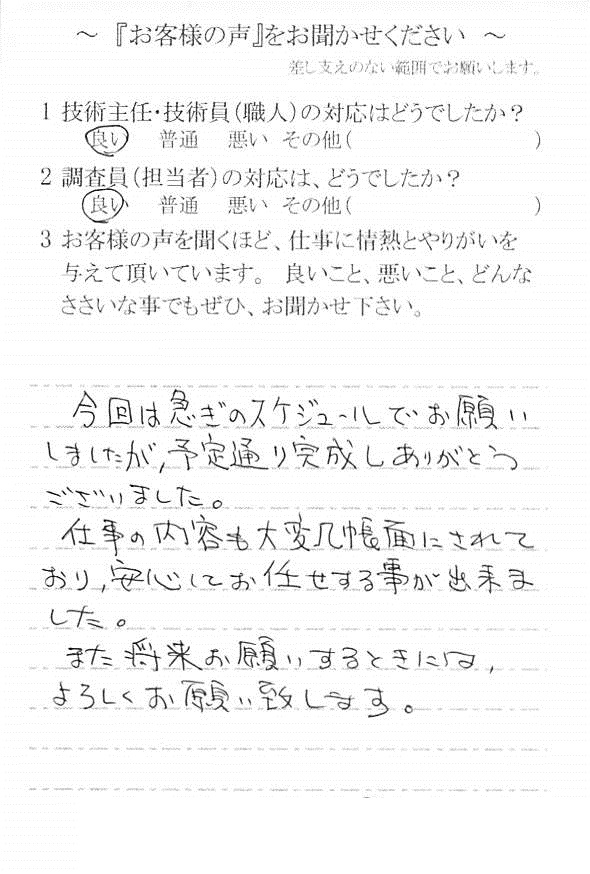 ～ 『お客様の声』をお聞かせください ～
差し支えのない範囲でお願いします。
1 技術主任・技術員（職人）の対応はどうでしたか？
良い 普通 悪い その他（ ）
2 調査員（担当者）の対応は、どうでしたか？
良い 普通 悪い その他（ ）
3 お客様の声を聞くほど、仕事に情熱とやりがいを
与えて頂いています。 良いこと、悪いこと、どんな
ささいな事でもぜひ、お聞かせ下さい。
今回は急ぎのスケジュールでお願い
しましたが,予定通り完成しありがとう
ございました。
仕事の内容も大変几帳面にされて
おり,安心してお任せする事が出来ま
した。
また将来お願いするときには,
よろしくお願い致します。